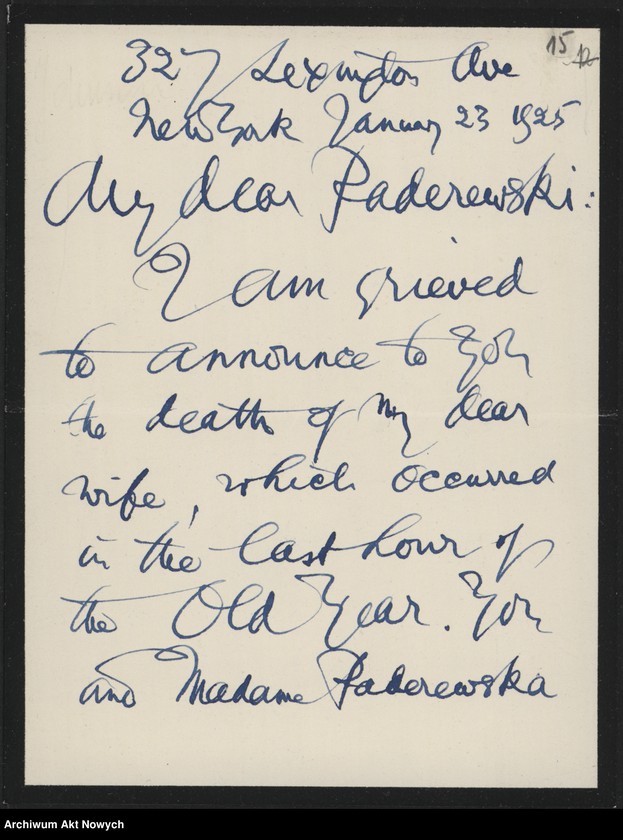 15
12
327 Lexington Ave
New York January 23 1925
My dear Paderewski:
I am grieved
to announce to you
the death of my dear
wife, which occurred
in the last hour of
the Old Year. You
and Madame Paderewska
Archiwum Akt Nowych